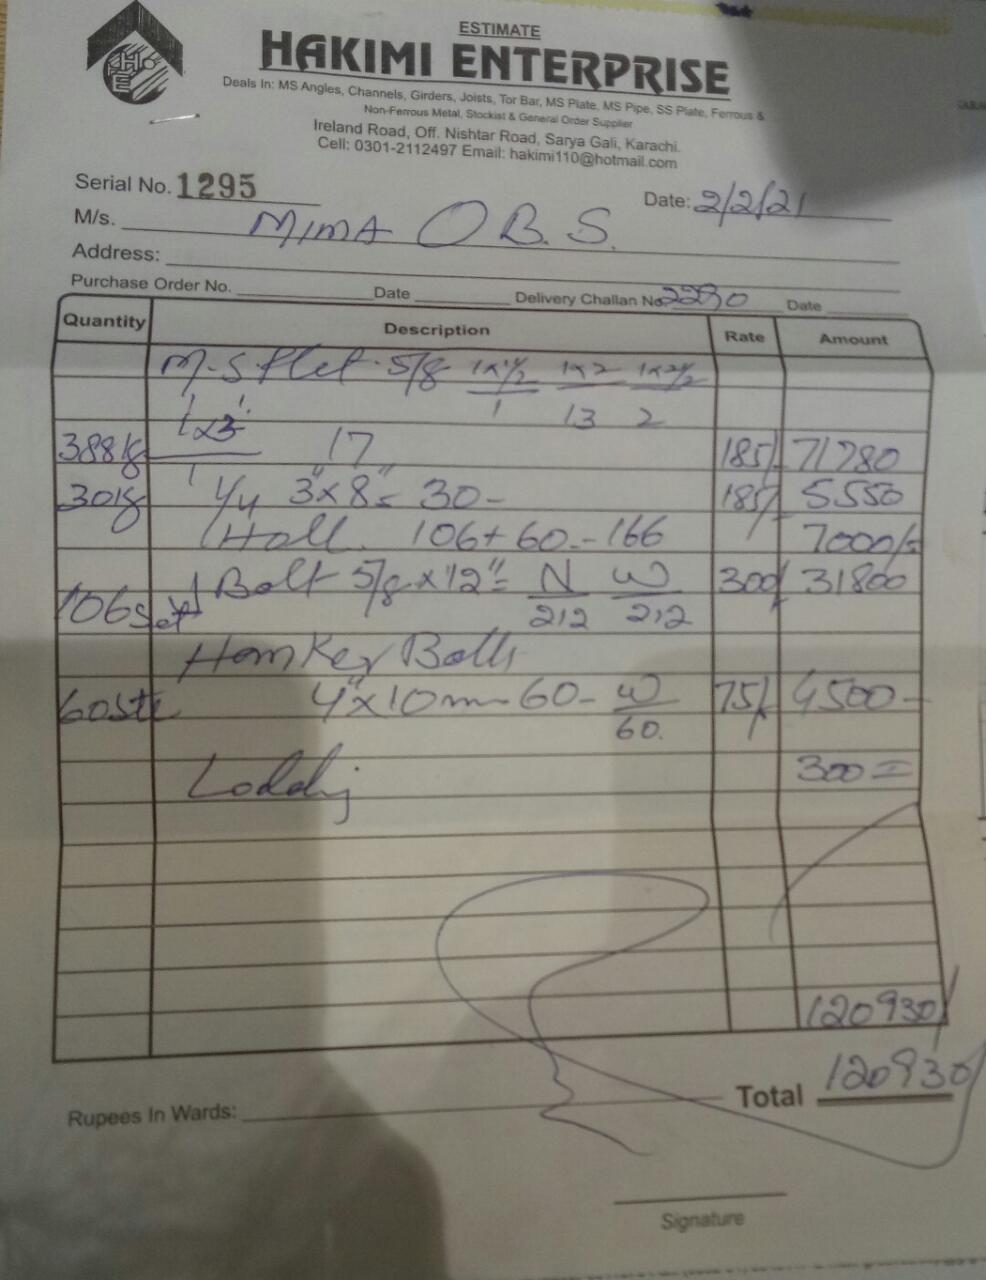 ESTIMATE
HAKIMI ENTERPRISE
Deals In: MS Angles, Channels, Girders, Joists, Tor Bar, MS Plate, MS Pipe, SS Plate, Ferrous &
Non-Ferrous Metal, Stockist & General Order Supplier
Ireland Road, Off. Nishtar Road, Sarya Gali, Karachi.
Cell: 0301-2112497 Email: hakimi110@hotmail.com
Serial No. 1295 Date: 2/2/21
M/s. MIMA O B. S.
Address:
Purchase Order No. Date Delivery Challan No. Date
Quantity Description Rate Amount
M-S flet 5/8 1x1/2 1x2 1x2/2
1 13 2
1x3
388 17 185/ 71780
30 1/4 3"x8"= 30- 185/ 5550
Holl. 106+60-166 7000/=
106 set Bolt 5/8x12"= N W 300/ 31800
212 212
Hamker Bolts
60 4"x10m 60- W 75/ 4500-
60.
Lodding 300=
120930/
Total 120930
Rupees In Wards:
Signature